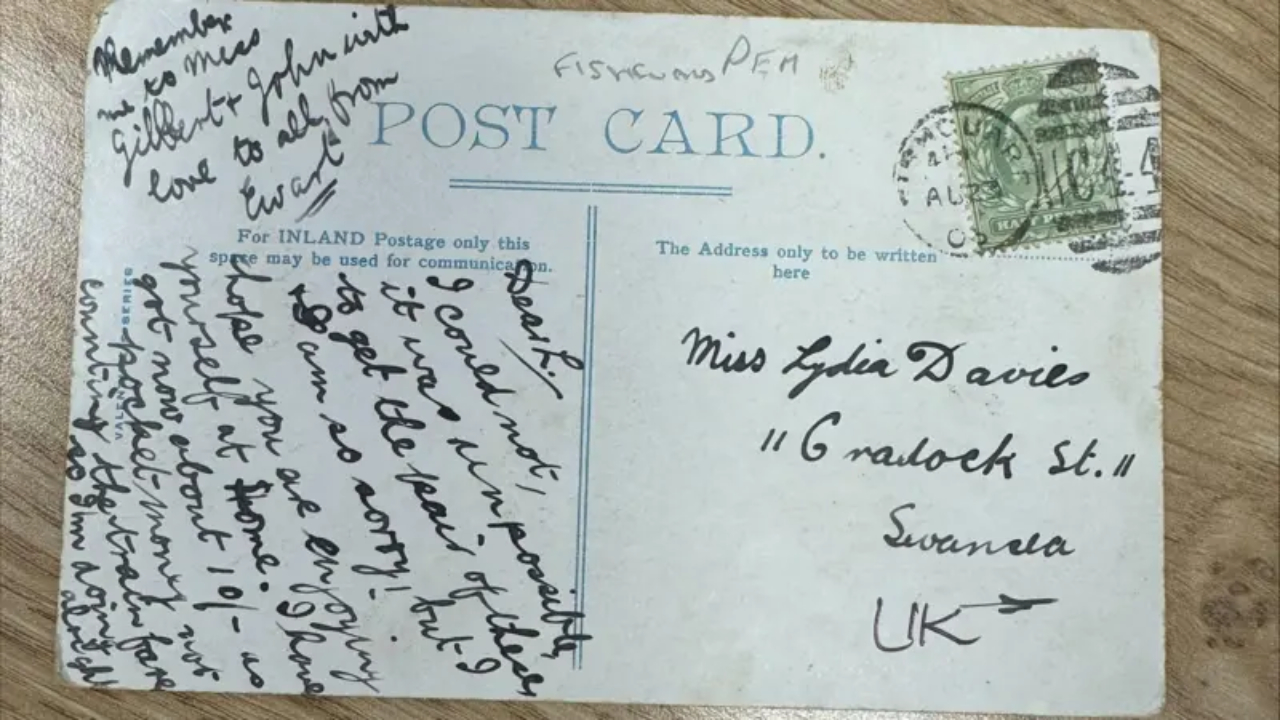 Remember
me to Miss
Gilbert + John with
love to all from
Ewart
PEM
POST CARD.
For INLAND Postage only this
space may be used for communication.
The Address only to be written
here
AU 23
Dear L.
I could not,
it was unpossible,
to get the pair of these
I am so sorry! but I
hope you are enjoying
yourself at home. I have
got now about 10/- as
pocket-money not
counting the train fare
so I'm doing
alright
Miss Lydia Davies
"Cradock St."
Swansea
UK